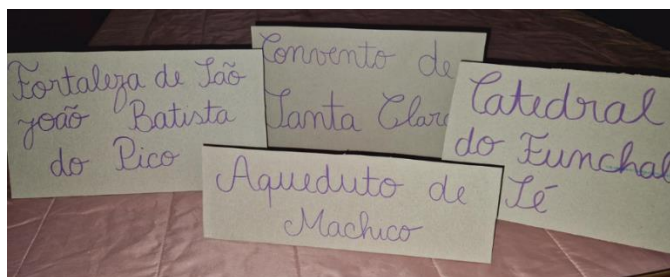 Fortaleza de São
João Batista
do Pico
Convento de
Santa Clara
Catedral
do Funchal
Sé
Aqueduto de
Machico